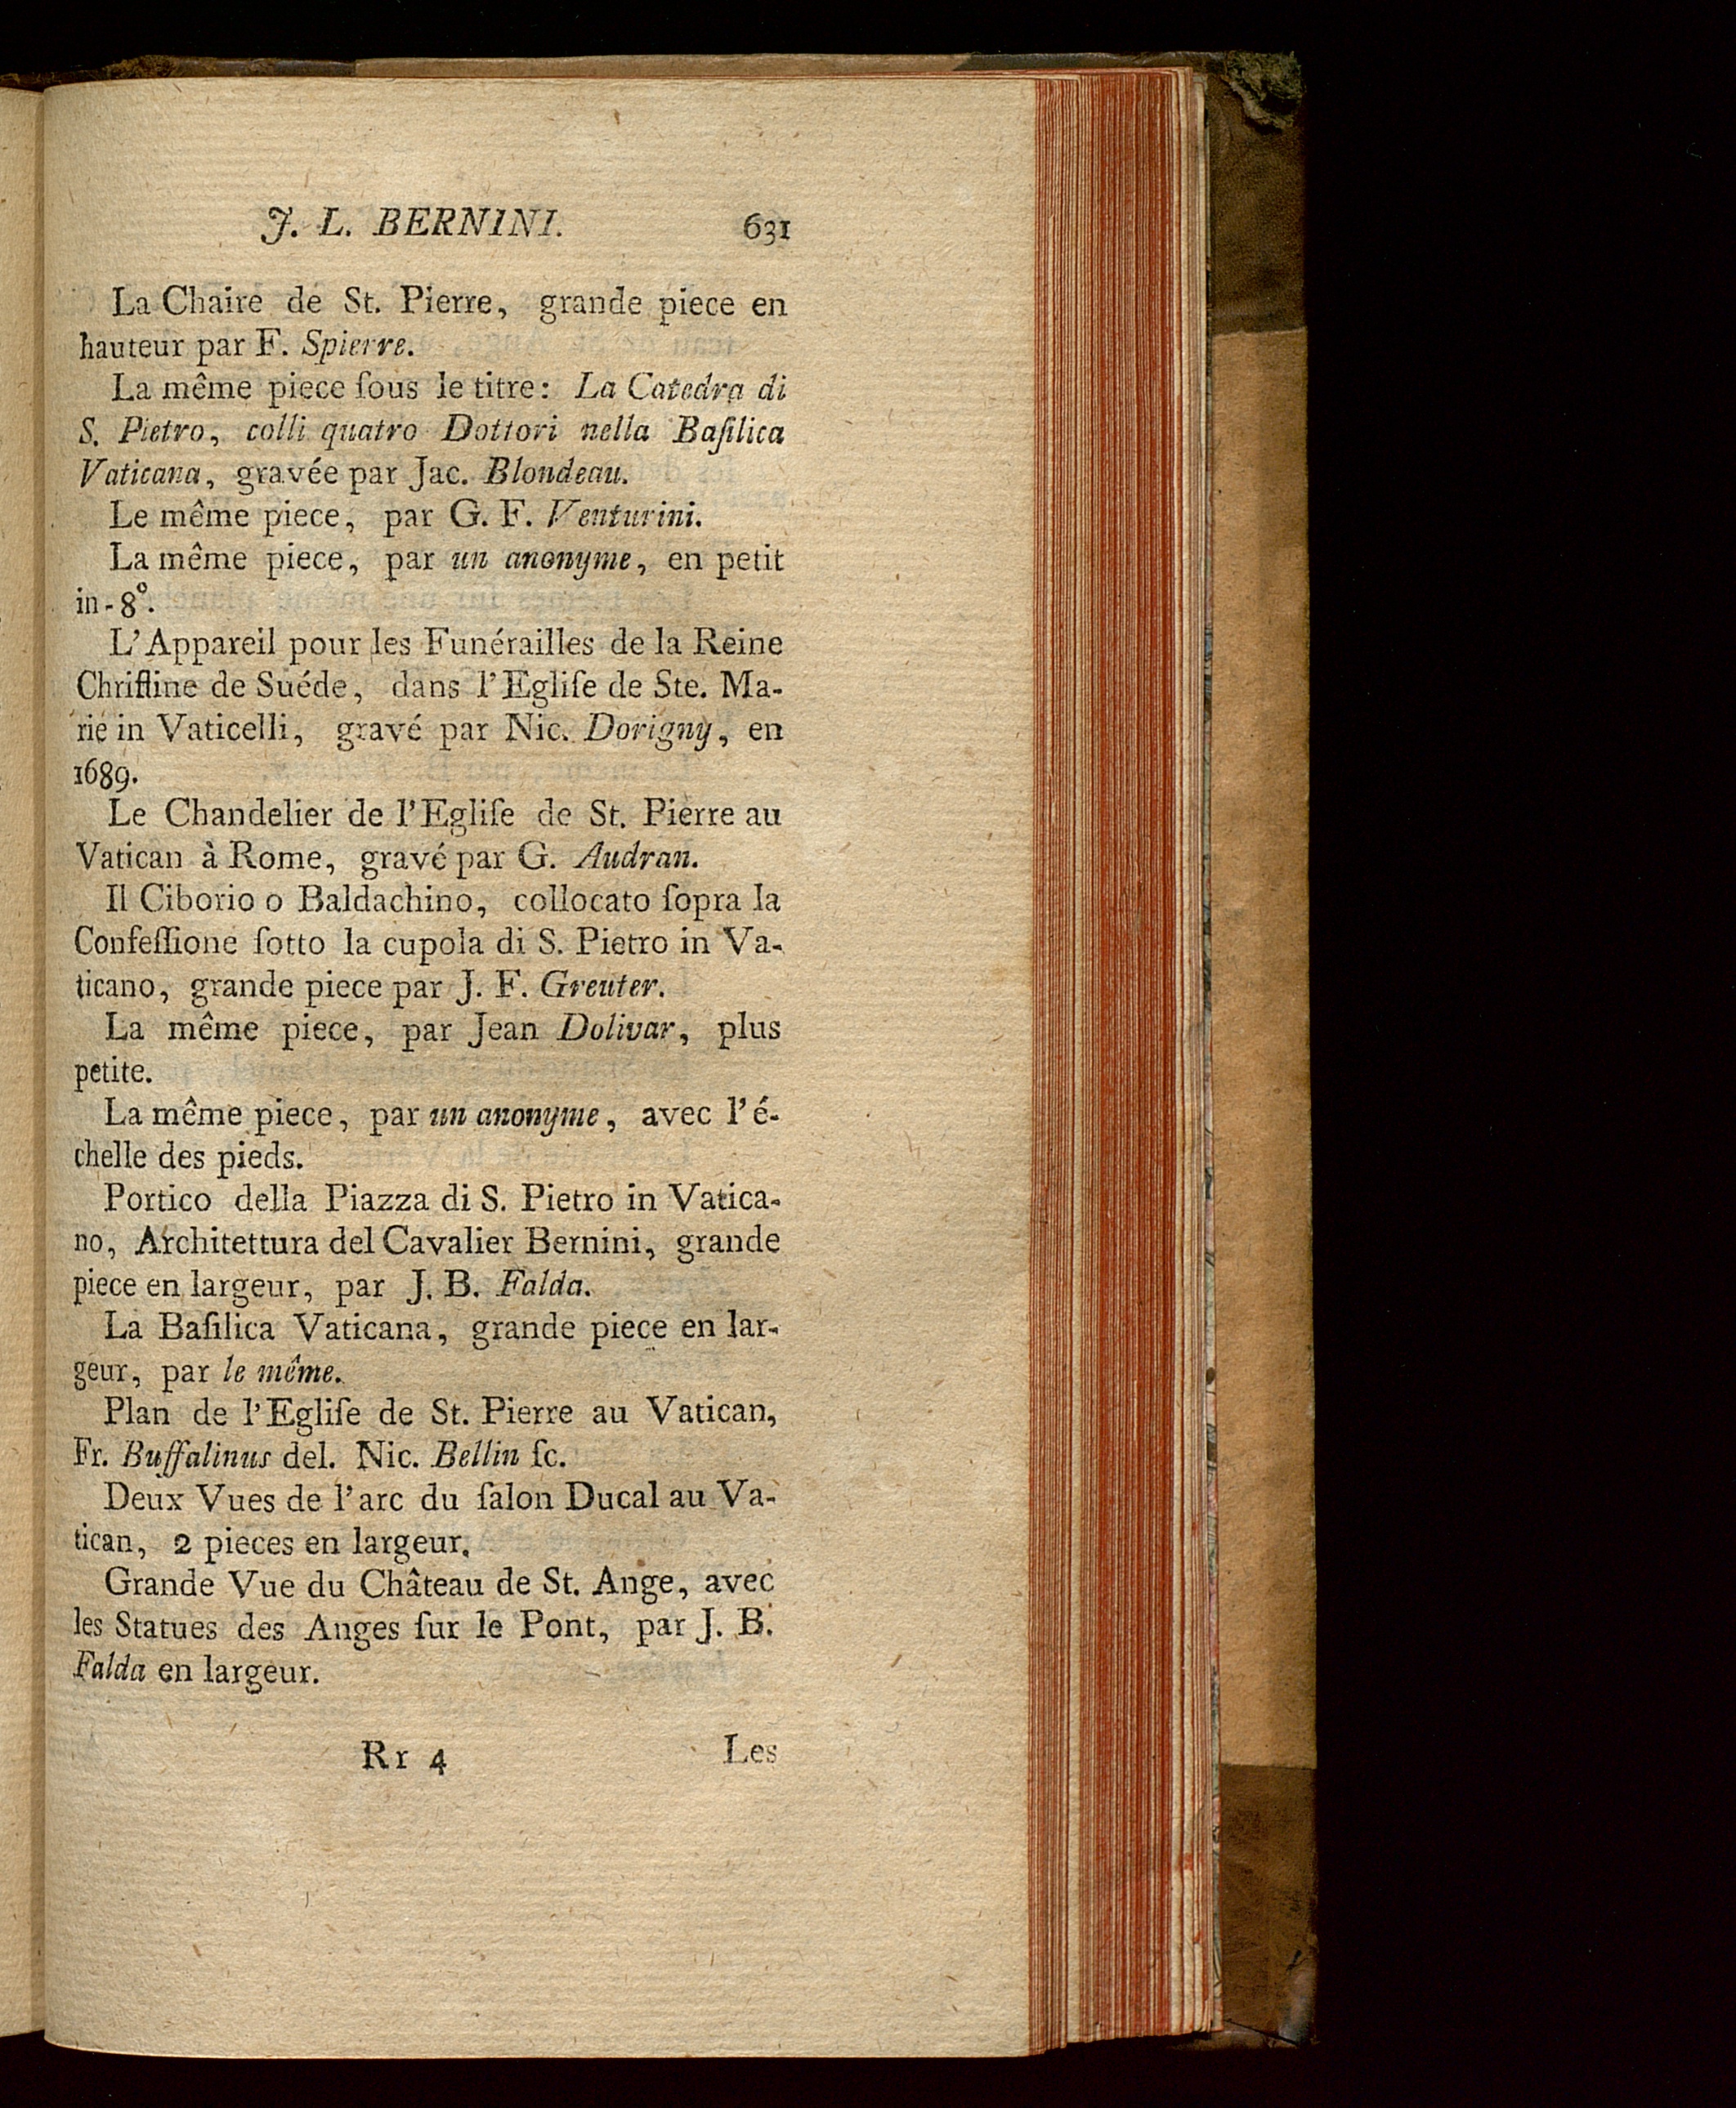 J. L. BERNINI. 631
La Chaire de St. Pierre, grande piece en
hauteur par F. Spierre.
La même piece ſous le titre: La Catedra di
S. Pietro, colli quatro Dottori nella Baſilica
Vaticana, gravée par Jac. Blondeau.
Le même piece, par G. F. Venturini.
La même piece, par un anonyme, en petit
in-8°.
L'Appareil pour les Funérailles de la Reine
Chriſtine de Suéde, dans l'Egliſe de Ste. Ma-
rie in Vaticelli, gravé par Nic. Dorigny, en
1689.
Le Chandelier de l'Egliſe de St. Pierre au
Vatican à Rome, gravé par G. Audran.
Il Ciborio o Baldachino, collocato ſopra la
Confeſſione ſotto la cupola di S. Pietro in Va-
ticano, grande piece par J. F. Greuter.
La même piece, par Jean Dolivar, plus
petite.
La même piece, par un anonyme, avec l'é-
chelle des pieds.
Portico della Piazza di S. Pietro in Vatica-
no, Architettura del Cavalier Bernini, grande
piece en largeur, par J. B. Falda.
La Baſilica Vaticana, grande piece en lar-
geur, par le même.
Plan de l'Egliſe de St. Pierre au Vatican,
Fr. Buffalinus del. Nic. Bellin ſc.
Deux Vues de l'arc du ſalon Ducal au Va-
tican, 2 pieces en largeur.
Grande Vue du Château de St. Ange, avec
les Statues des Anges ſur le Pont, par J. B.
Falda en largeur.
Rr 4 Les